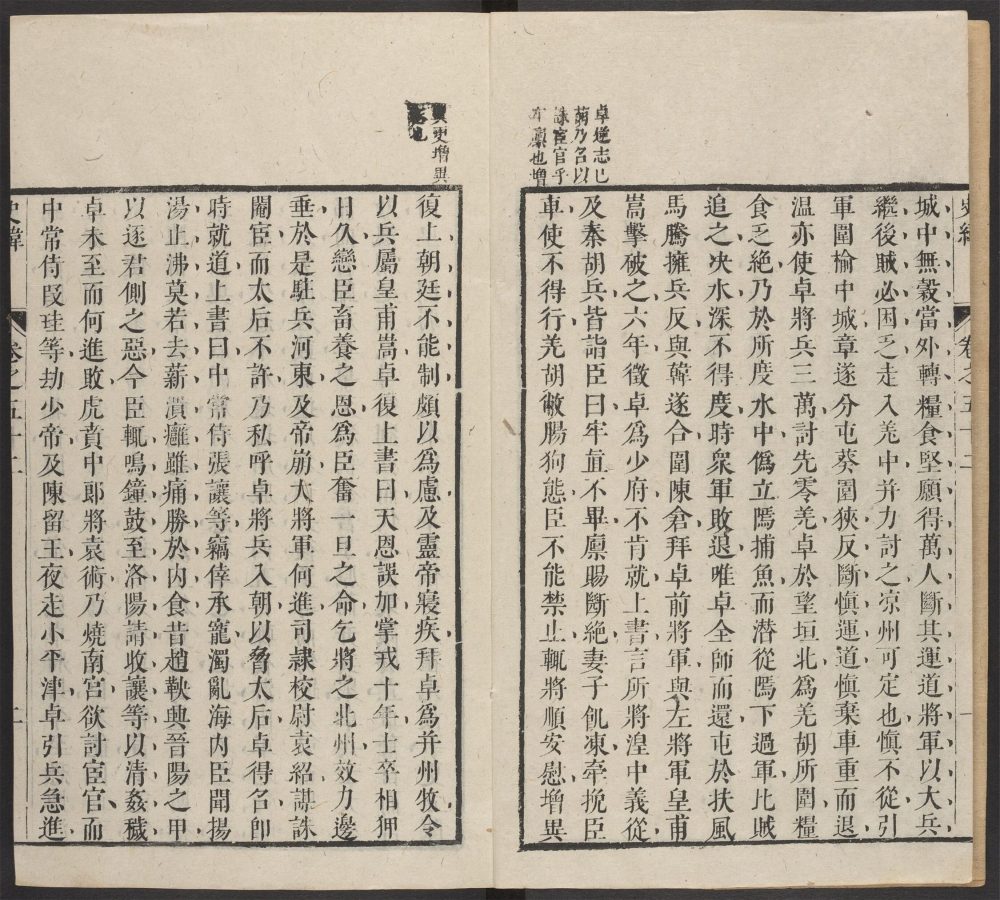 史緯
卷之五十二
一
卓逆志已
萌乃名以
誅宦官乎
不廪也增
城中無糓當外轉糧食堅願得萬人斷其運道將軍以大兵
繼後賊必困乏走入羌中并力討之凉州可定也愼不從引
軍圍榆中城章遂分屯葵園狹反斷愼運道愼棄車重而退
温亦使卓將兵三萬討先零羌卓於望垣北爲羌胡所圍糧
食乏絶乃於所度水中僞立隖捕魚而潛從隖下過軍比賊
追之决水深不得度時衆軍敗退唯卓全師而還屯於扶風
馬騰擁兵反與韓遂合圍陳倉拜卓前將軍與左將軍皇甫
嵩擊破之六年徵卓爲少府不肯就上書言所將湟中義從
及秦胡兵皆詣臣曰牢直不畢廪賜斷絶妻子飢凍牽挽臣
車使不得行羌胡敝腸狗態臣不能禁止輒將順安慰增異
更增異
也
復上朝廷不能制頗以爲慮及靈帝寢疾拜卓爲并州牧令
以兵屬皇甫嵩卓復上書曰天恩誤加掌戎十年士卒相狎
日久戀臣畜養之恩爲臣奮一旦之命乞將之北州效力邊
垂於是駐兵河東及帝崩大將軍何進司隷校尉袁紹謀誅
閹宦而太后不許乃私呼卓將兵入朝以脅太后卓得名卽
時就道上書曰中常侍張讓等竊倖承寵濁亂海内臣聞揚
湯止沸莫若去薪潰癰雖痛勝於内食昔趙鞅興晉陽之甲
以逐君側之惡今臣輒鳴鐘鼓至洛陽請收讓等以清姦穢
卓未至而何進敗虎賁中郎將袁術乃燒南宫欲討宦官而
中常侍叚珪等劫少帝及陳留王夜走小平津卓引兵急進
史緯
卷之五十二
二